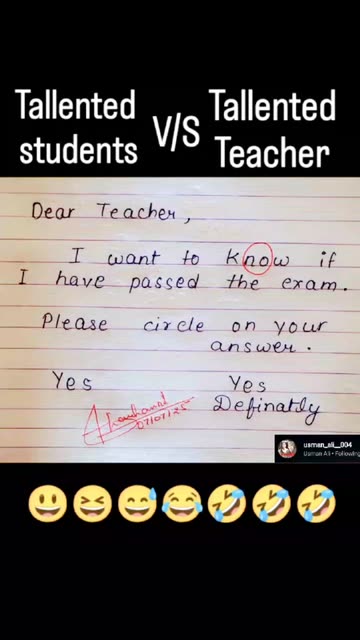 Tallented
students
V/S
Tallented
Teacher
Dear Teacher,
I want to know if
I have passed the exam.
Please circle on your
answer.
Yes
Yes
Definately
07/07/25
usman_ali__004
Usman Ali • Following